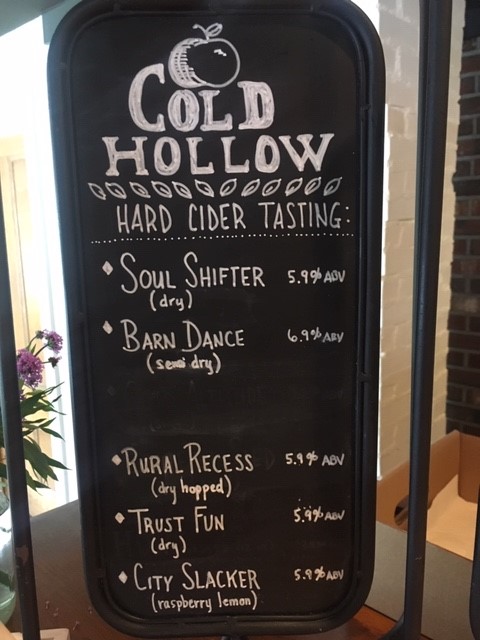 COLD
HOLLOW
HARD CIDER TASTING:
SOUL SHIFTER 5.9% ABV
(dry)
BARN DANCE 6.9% ABV
(semi dry)
RURAL RECESS 5.9% ABV
(dry hopped)
TRUST FUN 5.9% ABV
(dry)
CITY SLACKER 5.9% ABV
(raspberry lemon)